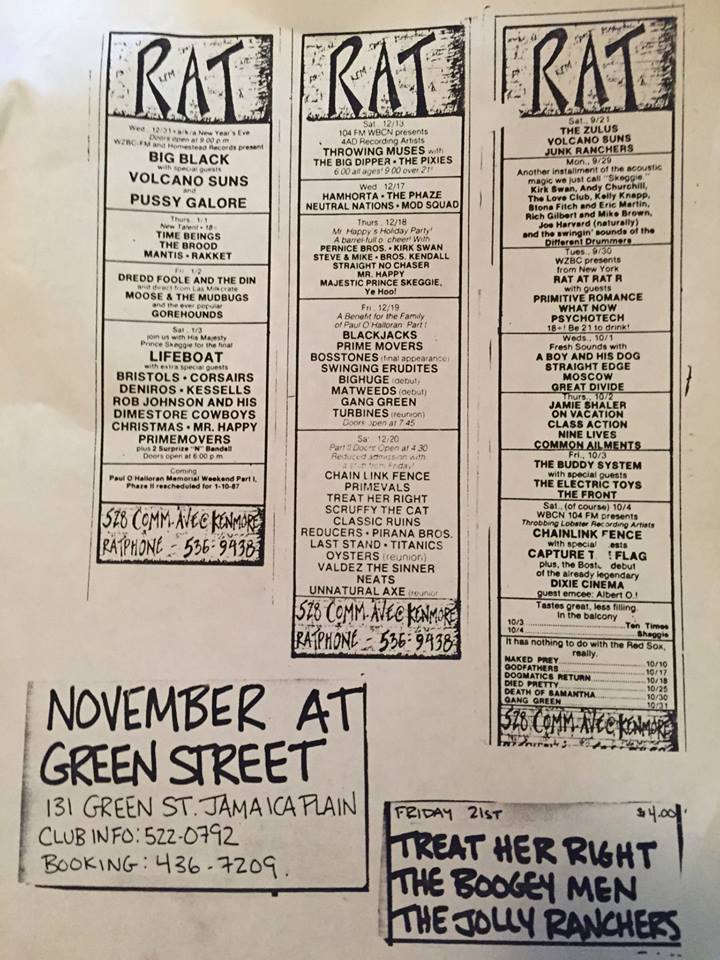 RAT
Wed. 12/31 • a/k/a New Year's Eve
Doors open at 9:00 p.m.
WZBC-FM and Homestead Records present
BIG BLACK
with special guests
VOLCANO SUNS
and
PUSSY GALORE
Thurs. 1/1
New Talent • 18+
TIME BEINGS
THE BROOD
MANTIS • RAKKET
Fri. 1/2
DREDD FOOLE AND THE DIN
and direct from Las Milkcrate
MOOSE & THE MUDBUGS
and the ever popular
GOREHOUNDS
Sat. 1/3
join us with His Majesty
Prince Skeggie for the final
LIFEBOAT
with extra special guests
BRISTOLS • CORSAIRS
DENIROS • KESSELLS
ROB JOHNSON AND HIS
DIMESTORE COWBOYS
CHRISTMAS • MR. HAPPY
PRIMEMOVERS
plus 2 Surprize "N" Bands!!
Doors open at 6:00 p.m.
Coming
Paul O'Halloran Memorial Weekend Part I,
Phaze II rescheduled for 1-10-87
528 COMM. AVE @ KENMORE
RATPHONE - 536-9438
RAT
Sat. 12/13
104 FM WBCN presents
4AD Recording Artists
THROWING MUSES with
THE BIG DIPPER • THE PIXIES
6:00 all ages! 9:00 over 21!
Wed. 12/17
HAMHORTA • THE PHAZE
NEUTRAL NATIONS • MOD SQUAD
Thurs. 12/18
Mr. Happy's Holiday Party!
A barrel-full o' cheer! With
PERNICE BROS. • KIRK SWAN
STEVE & MIKE • BROS. KENDALL
STRAIGHT NO CHASER
MR. HAPPY
MAJESTIC PRINCE SKEGGIE,
Ye Hoo!
Fri. 12/19
A Benefit for the Family
of Paul O'Halloran. Part I
BLACKJACKS
PRIME MOVERS
BOSSTONES (final appearance)
SWINGING ERUDITES
BIGHUGE (debut)
MATWEEDS (debut)
GANG GREEN
TURBINES (reunion)
Doors open at 7:45
Sat. 12/20
Part II Doors Open at 4:30
Reduced admission with
a stub from Friday!
CHAIN LINK FENCE
PRIMEVALS
TREAT HER RIGHT
SCRUFFY THE CAT
CLASSIC RUINS
REDUCERS • PIRANA BROS.
LAST STAND • TITANICS
OYSTERS (reunion)
VALDEZ THE SINNER
NEATS
UNNATURAL AXE (reunion
528 COMM. AVE @ KENMORE
RATPHONE - 536-9438
RAT
Sat., 9/21
THE ZULUS
VOLCANO SUNS
JUNK RANCHERS
Mon., 9/29
Another installment of the acoustic
magic we just call "Skeggie"
Kirk Swan, Andy Churchill,
The Love Club, Kelly Knapp,
Stona Fitch and Eric Martin,
Rich Gilbert and Mike Brown,
Joe Harvard (naturally)
and the swingin' sounds of the
Different Drummers
Tues., 9/30
WZBC presents
from New York
RAT AT RAT R
with guests
PRIMITIVE ROMANCE
WHAT NOW
PSYCHOTECH
18+! Be 21 to drink!
Weds., 10/1
Fresh Sounds with
A BOY AND HIS DOG
STRAIGHT EDGE
MOSCOW
GREAT DIVIDE
Thurs., 10/2
JAMIE SHALER
ON VACATION
CLASS ACTION
NINE LIVES
COMMON AILMENTS
Fri., 10/3
THE BUDDY SYSTEM
with special guests
THE ELECTRIC TOYS
THE FRONT
Sat., (of course) 10/4
WBCN 104 FM presents
Throbbing Lobster Recording Artists
CHAINLINK FENCE
with special ests
CAPTURE T ! FLAG
plus, the Bost debut
of the already legendary
DIXIE CINEMA
guest emcee: Albert O.!
Tastes great, less filling.
In the balcony
10/3 Ten Times
10/4 Skeggie
It has nothing to do with the Red Sox,
really.
NAKED PREY 10/10
GODFATHERS 10/17
DOGMATICS RETURN 10/18
DIED PRETTY 10/25
DEATH OF SAMANTHA 10/30
GANG GREEN 10/31
528 COMM. AVE @ KENMORE
NOVEMBER AT
GREEN STREET
131 GREEN ST. JAMAICA PLAIN
CLUB INFO: 522-0792
BOOKING: 436-7209.
FRIDAY 21ST $4.00
TREAT HER RIGHT
THE BOOGEY MEN
THE JOLLY RANCHERS